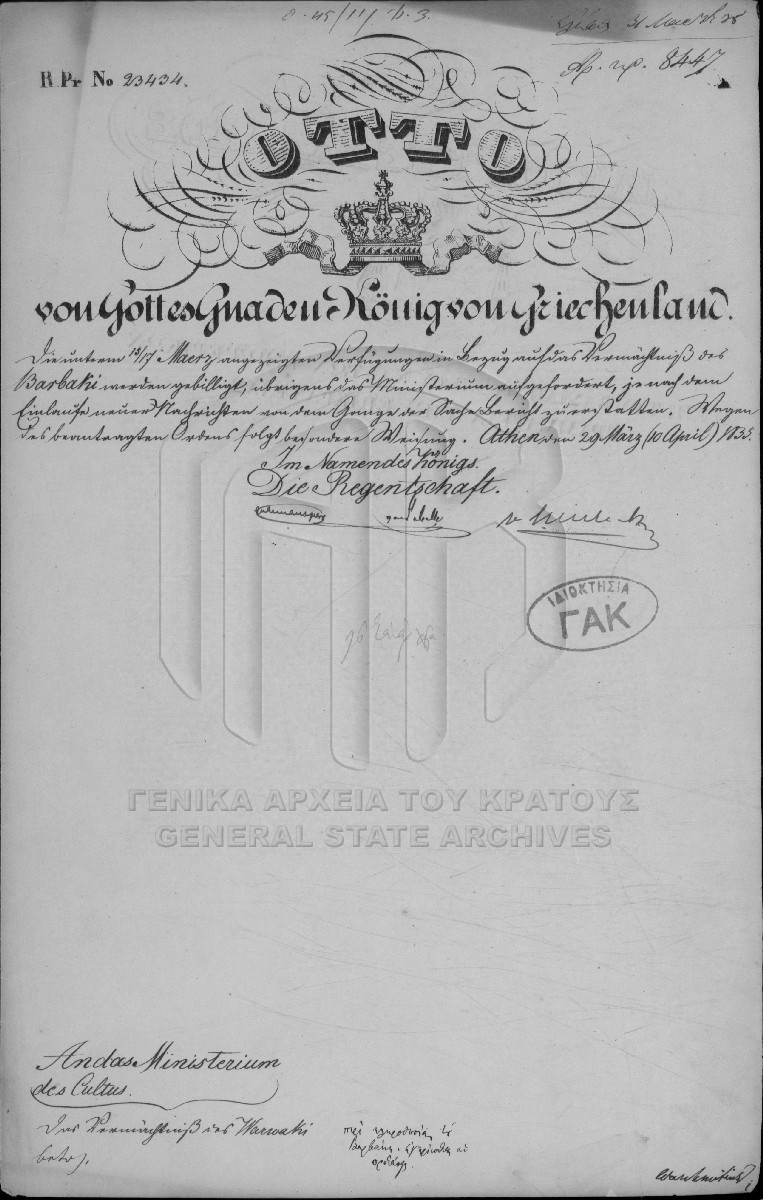 31
R Pr No 23434.
Αρ. πρ. 8447
OTTO
von Gottes Gnaden König von Griechenland.
Die unterm 15/17 Maerz angezeigten Verfügungen in Bezug auf das Vermächtniß des
Barbaki werden gebilligt, übrigens das Ministerium aufgefordert, je nach dem
Einlaufe neuer Nachrichten von dem Gange der Sache Bericht zu erstatten. Wegen
des beantragten Ordens folgt besondere Weisung. Athen den 29 März (10 April) 1835.
Im Namen des Königs.
Die Regentschaft.
ΙΔΙΟΚΤΗΣΙΑ
ΓΑΚ
ΓΕΝΙΚΑ ΑΡΧΕΙΑ ΤΟΥ ΚΡΑΤΟΥΣ
GENERAL STATE ARCHIVES
An das Ministerium
des Cultus.
Das Vermächtniß des Warwaki
betr.